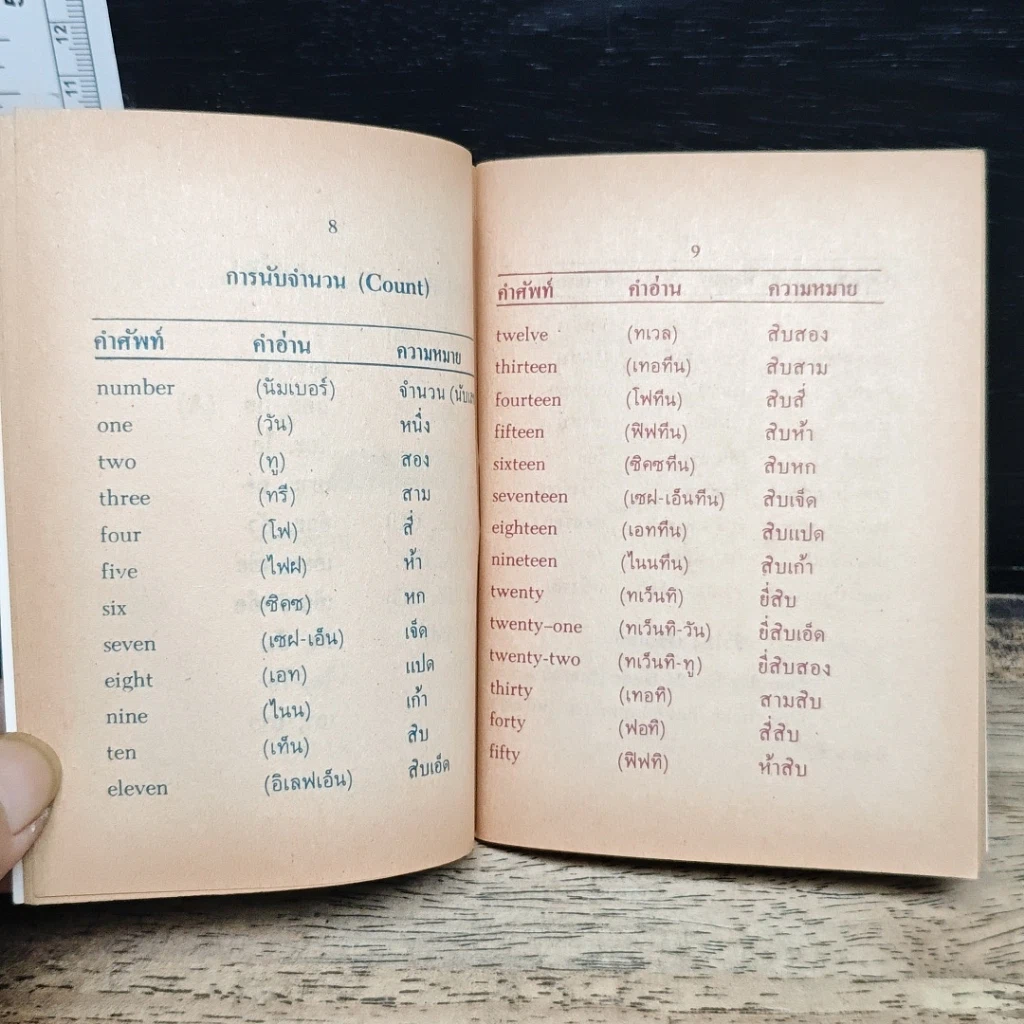 12
11
8
การนับจำนวน (Count)
คำศัพท์ คำอ่าน ความหมาย
number (นัมเบอร์) จำนวน
one (วัน) หนึ่ง
two (ทู) สอง
three (ทรี) สาม
four (โฟ) สี่
five (ไฟฝ) ห้า
six (ซิคซ) หก
seven (เซฝ-เอ็น) เจ็ด
eight (เอท) แปด
nine (ไนน) เก้า
ten (เท็น) สิบ
eleven (อิเลฟเอ็น) สิบเอ็ด
9
คำศัพท์ คำอ่าน ความหมาย
twelve (ทเวล) สิบสอง
thirteen (เทอทีน) สิบสาม
fourteen (โฟทีน) สิบสี่
fifteen (ฟิฟทีน) สิบห้า
sixteen (ซิคซทีน) สิบหก
seventeen (เซฝ-เอ็นทีน) สิบเจ็ด
eighteen (เอททีน) สิบแปด
nineteen (ไนนทีน) สิบเก้า
twenty (ทเว็นทิ) ยี่สิบ
twenty-one (ทเว็นทิ-วัน) ยี่สิบเอ็ด
twenty-two (ทเว็นทิ-ทู) ยี่สิบสอง
thirty (เทอทิ) สามสิบ
forty (ฟอทิ) สี่สิบ
fifty (ฟิฟทิ) ห้าสิบ